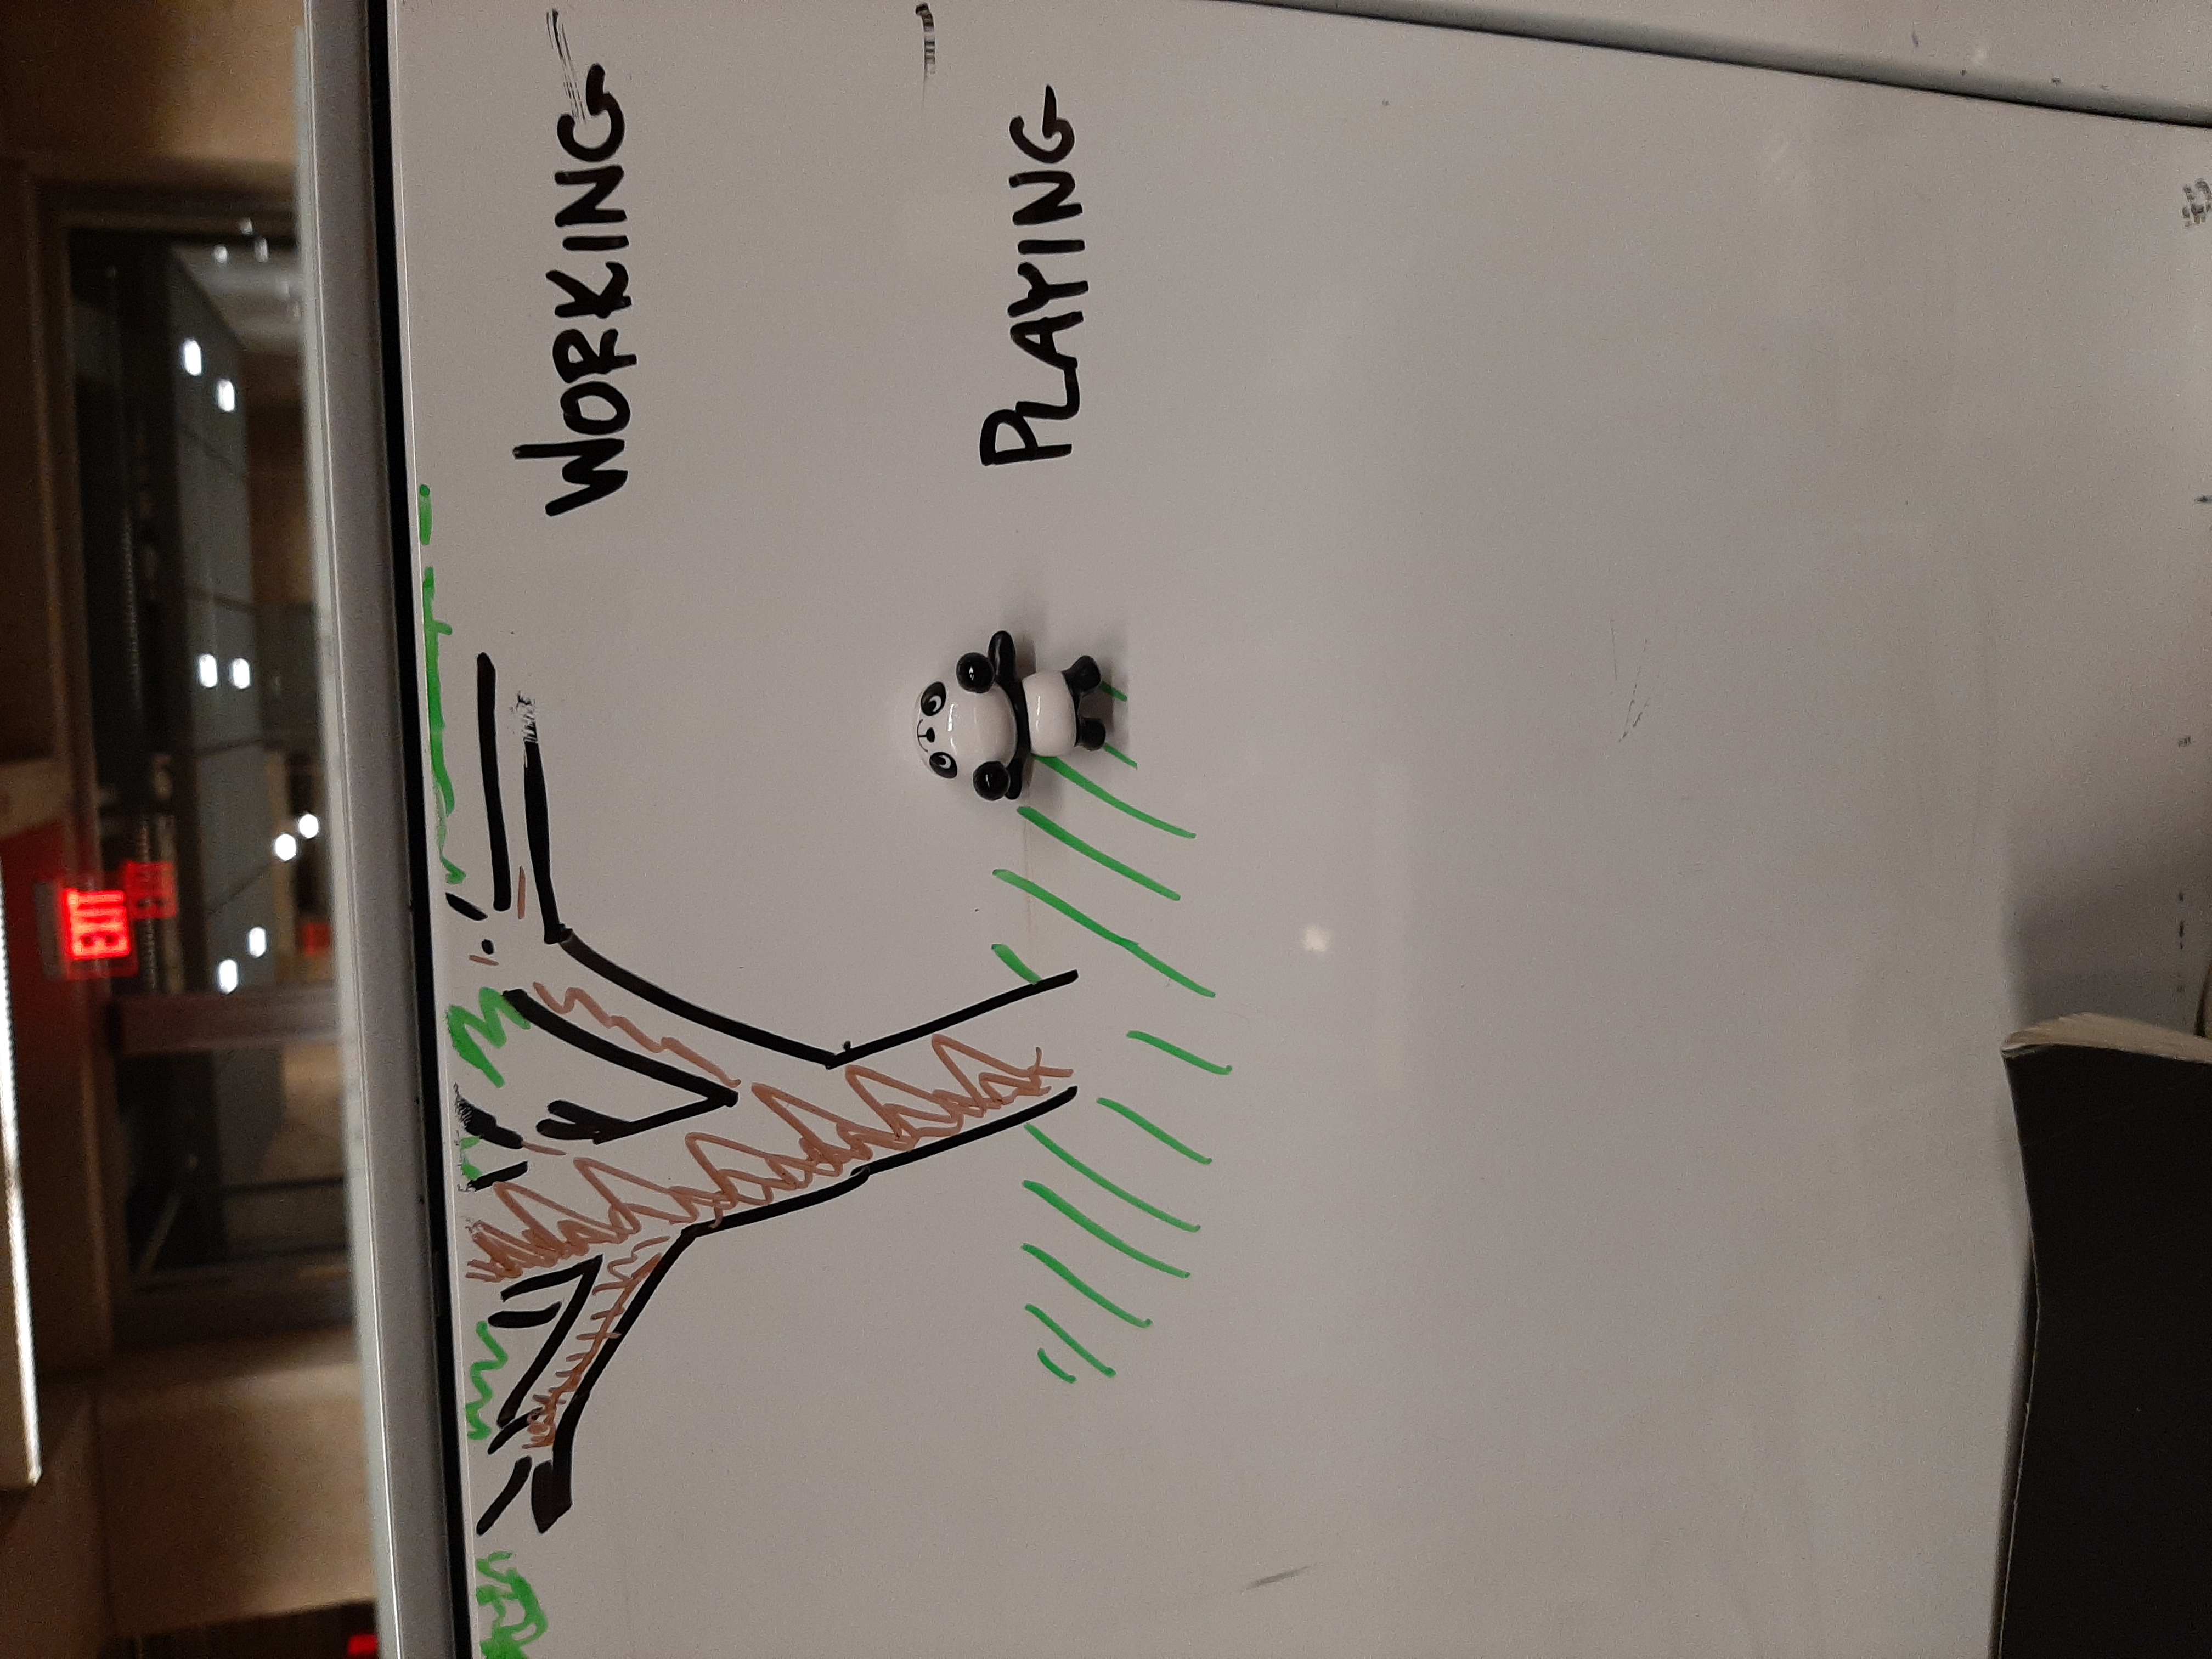 EXIT
EXIT
WORKING
PLAYING